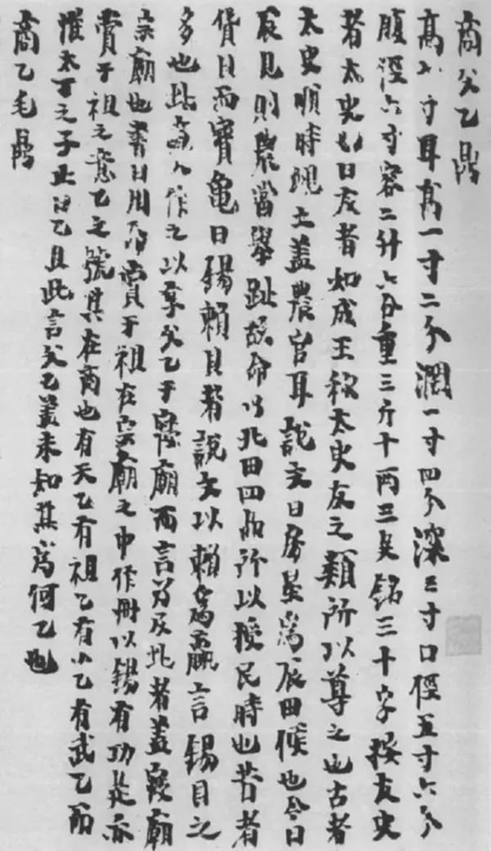 商父乙鼎
高八寸耳高一寸二分濶一寸四分深三寸口徑五寸六分
腹徑六寸容二升六合重三斤十兩三足銘三十字按友史
者太史也曰友者如成王称太史友之類所以尊之也古者
太史順時覛土盖農官耳說文曰房星為辰田候也今曰
辰見則農當舉趾故命以北田四品所以授民時也昔者
貨貝而寶龜曰錫賴貝者說文以賴為贏言錫貝之
多也此商人作之以享父乙于寢廟而言及北者盖寢廟
宗廟也書曰用命賞于祖在宗廟之中作冊以錫有功是亦
賞于祖之意乙之號其在商也有天乙有祖乙有小乙有武乙而
惟太丁之子止曰乙且此言父乙盖未知其為何乙也
商乙毛鼎